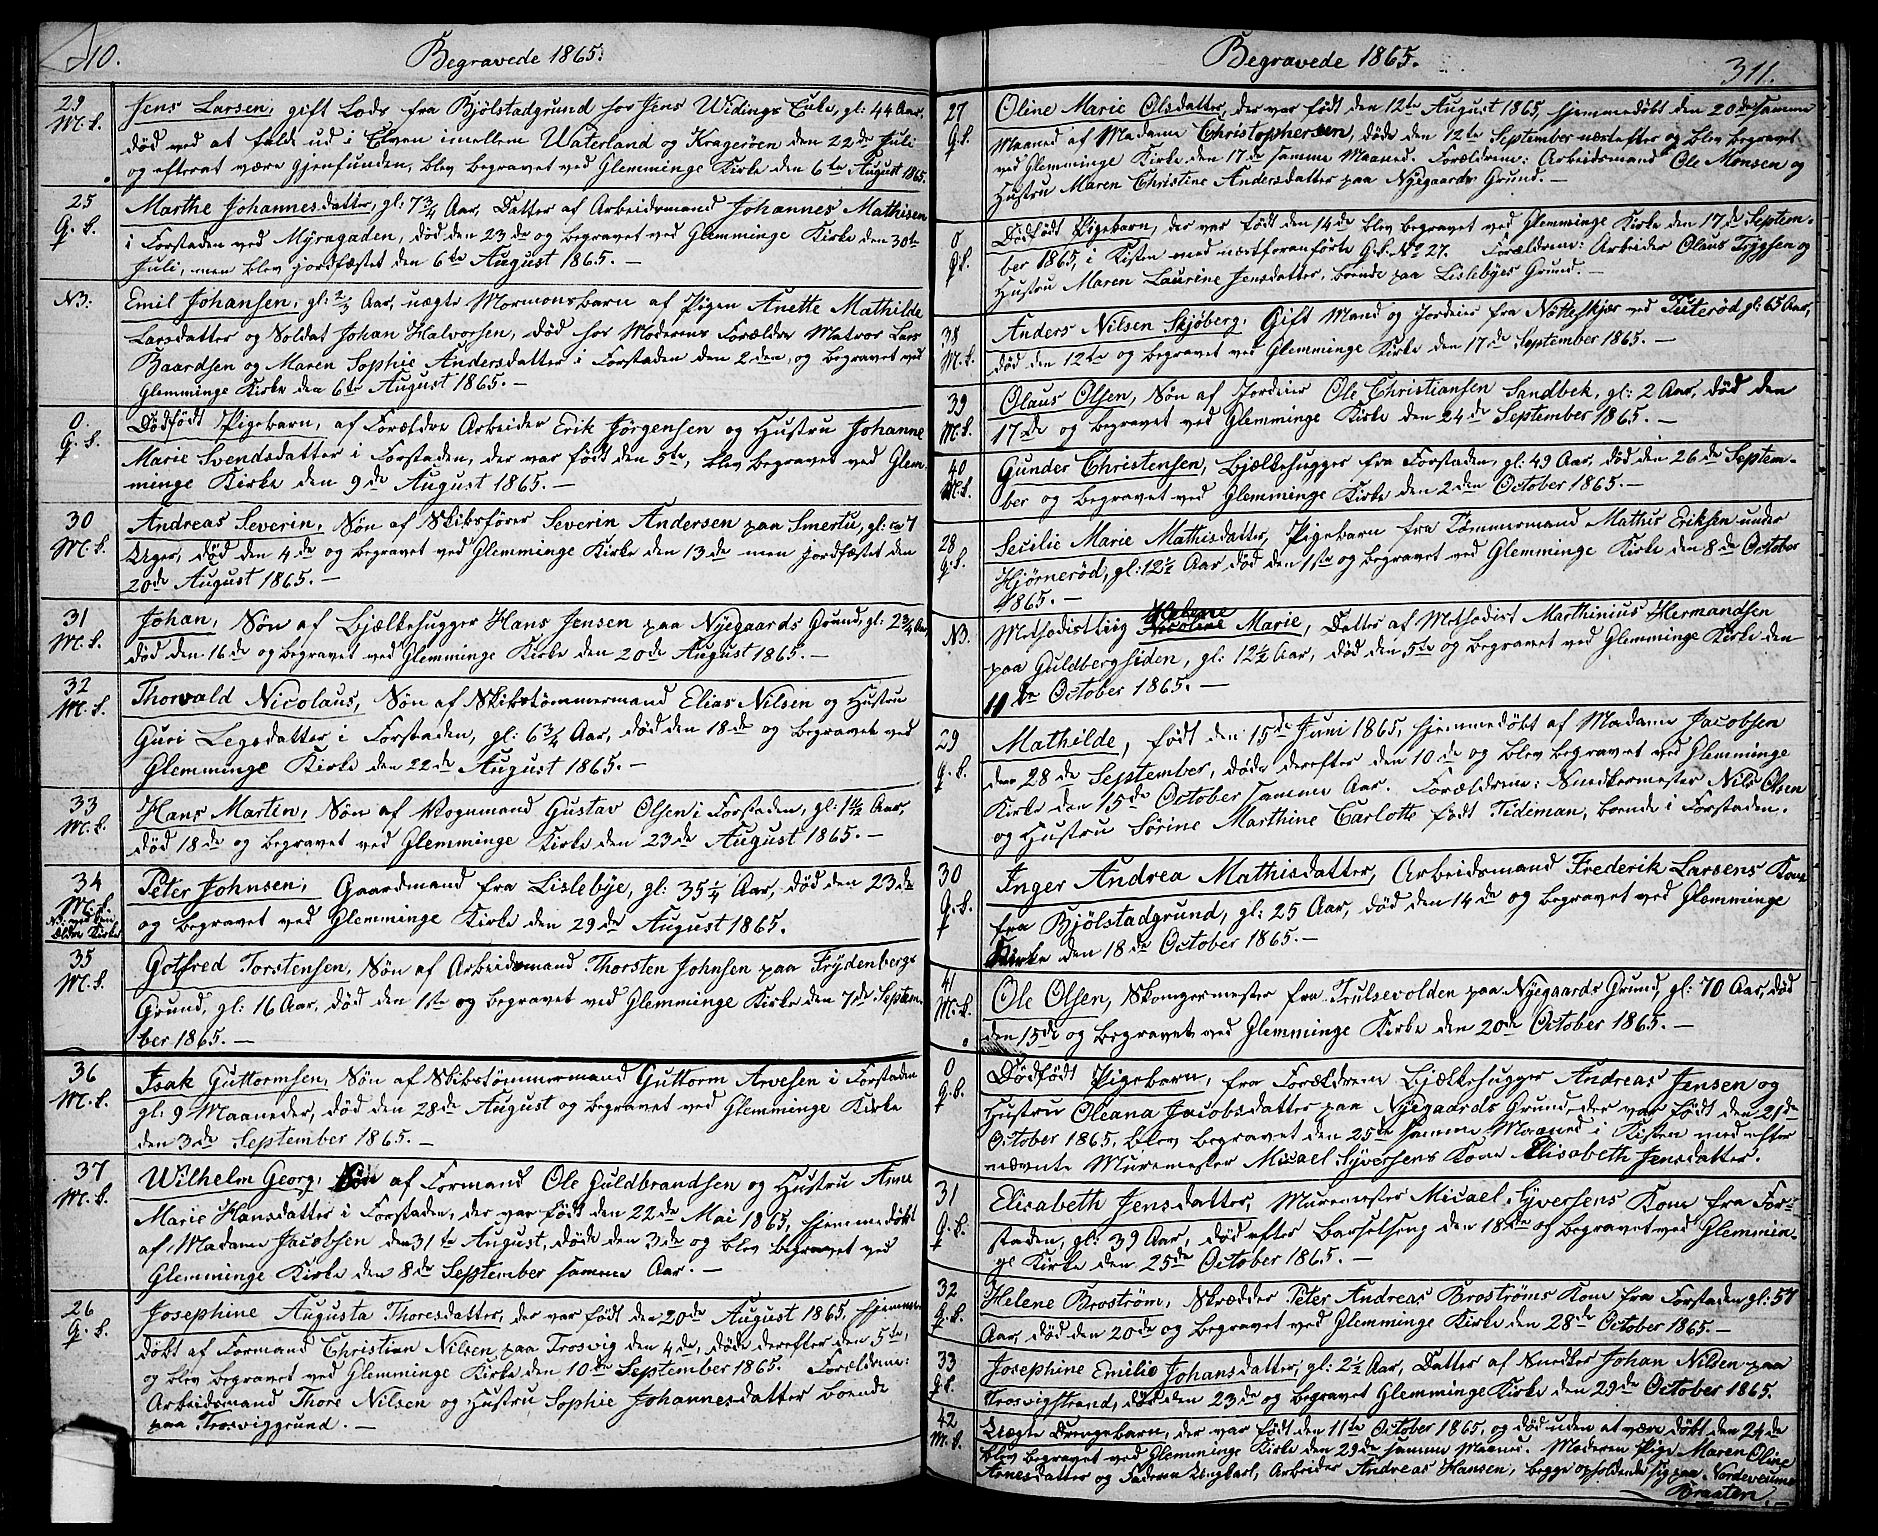 10.
Begravede 1865.
29
M. k.
Jens Larsen, gift Lods fra Bjölstadgrund hos Jens Widings Enke, gl: 44 Aar,
död ved at falde ud i Elven imellem Waterland og Kragerøen den 22de Juli
og efterat være gjenfunden, blev begravet ved Glemminge Kirke den 6te August 1865.
25
Q. k.
Marthe Johannesdatter, gl: 7 3/4 Aar, Datter af Arbeidsmand Johannes Mathisen
i Forstaden ved Myragaden, död den 23de og begravet ved Glemminge Kirke den 30te
Juli, men blev jordfæstet den 6te August 1865. —
NB:
Emil Johansen, gl: 2/3 Aar, uægte Mormonsbarn af Pigen Anette Mathilde
Larsdatter og Soldat Johan Halvorsen, död hos Moderens Forældre Matros Lars
Baardsen og Maren Sophie Andersdatter i Forstaden den 2den, og begravet ved
Glemminge Kirke den 6te August 1865. —
0.
Q. k.
Dödfödt Pigebarn, af Forældre Arbeider Erik Jörgensen og Hustru Johanne
Marie Svendsdatter i Forstaden, der var födt den 5te, blev begravet ved Glem-
minge Kirke den 9de August 1865. —
30
M. k.
Andreas Severin, Sön af Skibsförer Severin Andersen paa Smertu, gl: ca 7
Uger, död den 4de og begravet ved Glemminge Kirke den 13de men jordfæstet den
20de August 1865. —
31
M. k.
Johan, Sön af Bjælkehugger Hans Jensen paa Nyegaards Grund, gl: 2 3/4 Aar,
död den 16de og begravet ved Glemminge Kirke den 20de August 1865. —
32
M. k.
Thorvald Nicolaus, Sön af Skibstömmermand Elias Nilsen og Hustru
Guri Legsdatter i Forstaden, gl: 6 3/4 Aar, död den 18de og begravet ved
Glemminge Kirke den 22de August 1865. —
33
M. k.
Hans Martin, Sön af Vognmand Gustav Olsen i Forstaden, gl: 1 1/2 Aar,
död 18de og begravet ved Glemminge Kirke den 23de August 1865. —
34
M. k.
NB: ved den
Ældre Kirke
Peter Johnsen, Gaardmand fra Lislebye, gl: 35 1/4 Aar, död den 23de
og begravet ved Glemminge Kirke den 29de August 1865.
35
M. k.
Gotfred Torstensen, Sön af Arbeidsmand Thorsten Johnsen paa Frydenbergs
Grund, gl: 16 Aar, död den 1ste og begravet ved Glemminge Kirke den 7de Septem-
ber 1865. —
36
M. k.
Isak Guttormsen, Sön af Skibstömmermand Guttorm Arvesen i Forstaden
gl: 9 Maaneder, död den 28de August og begravet ved Glemminge Kirke
den 3de September 1865. —
37
M. k.
Wilhelm Georg, Sön af Formand Ole Guldbrandsen og Hustru Anne
Marie Hansdatter i Forstaden, der var födt den 22de Mai 1865, hjemmedöbt
af Madame Jacobsen den 31te August, döde den 3de og blev begravet ved
Glemminge Kirke den 8de September samme Aar. —
26
Q. k.
Josephine Augusta Thoresdatter, der var födt den 20de August 1865, hjemme-
döbt af Formand Christian Nilsen paa Trosvig den 4de, döde derefter den 5te,
og blev begravet ved Glemminge Kirke den 10de September 1865. Forældrene:
Arbeidsmand Thore Nilsen og Hustru Sophie Johannesdatter boende
paa Trosviggrund. —
Begravede 1865.
311.
27
Q. k.
Oline Marie Olsdatter, der var födt den 12te August 1865, hjemmedöbt den 20de samme
Maaned af Madame Christophersen, döde den 12te September næstefter og blev begravet
ved Glemminge Kirke den 17de samme Maaned. Forældrene: Arbeidsmand Ole Monsen og
Hustru Maren Christine Andersdatter paa Nyegaards Grund. —
0
Q. k.
Dödfödt Pigebarn, der var födt den 14de blev begravet ved Glemminge Kirke den 17de Septem-
ber 1865, i Kisten med næstforanförte Q. k. No 27. Forældrene: Arbeider Olaus Tryggsen og
Hustru Maren Laurine Jensdatter, boende paa Lislebyes Grund. —
38
M. k.
Anders Nilsen Skjöberg, Gift Mand og Jordeier fra Nötteskjær ved Tuteröd gl: 65 Aar,
död den 12te og begravet ved Glemminge Kirke den 17de September 1865. —
39
M. k.
Olaus Olsen, Sön af Jordeier Ole Christiansen Sandbek, gl: 2 Aar, död den
17de og begravet ved Glemminge Kirke den 24de September 1865. —
40
M. k.
Gunder Christensen, Bjælkehugger fra Forstaden, gl: 49 Aar, död den 26de Septem-
ber og begravet ved Glemminge Kirke den 2den October 1865. —
28
Q. k.
Secilie Marie Mathisdatter, Pigebarn fra Tömmermand Mathis Eriksen under
Hjörneröd, gl: 12 1/2 Aar, död den 1ste og begravet ved Glemminge Kirke den 8de October
1865. —
NB.
Helene
Methodistlig Nicoline Marie, Datter af Methodist Marthinius Hermandsen
paa Guldbergsiden, gl: 12 1/2 Aar, död den 5te og begravet ved Glemminge Kirke den
11te October 1865. —
29
Q. k.
Mathilde, födt den 15de Juni 1865, hjemmedöbt af Madame Jacobsen
den 28de September, döde derefter den 10de og blev begravet ved Glemminge
Kirke den 15de October samme Aar. Forældrene: Snedkermester Nils Olsen
og Hustru Sörine Marthine Carlotte födt Tideman, boende i Forstaden.
30
Q. k.
Inger Andrea Mathisdatter, Arbeidsmand Frederik Larsens Kone
fra Bjölstadgrund, gl: 25 Aar, död den 14de og begravet ved Glemminge
Kirke den 18de October 1865. —
41
M. k.
Ole Olsen, Skomagermester fra Trulsevolden paa Nyegaards Grund, gl: 70 Aar, död
den 15de og begravet ved Glemminge Kirke den 20de October 1865. —
0
Q. k.
Dödfödt Pigebarn, fra Forældrene Bjælkehugger Andreas Jensen og
Hustru Oleana Jacobsdatter paa Nyegaards Grund, der var födt den 21de
October 1865, blev begravet den 25de samme Maaned i Kisten med efter
nævnte Muremester Micael Syversens Kone Elisabeth Jensdatter.
31
Q. k.
Elisabeth Jensdatter, Muremester Micael Syversens Kone fra For-
staden, gl: 39 Aar, död efter Barselseng den 18de og begravet ved Glemmin-
ge Kirke den 25de October 1865. —
32
Q. k.
Helene Broström, Skrædder Peter Andreas Broströms Kone fra Forstaden gl: 57
Aar, död den 20de og begravet ved Glemminge Kirke den 28de October 1865. —
33
Q. k.
Josephine Emilie Johansdatter, gl: 2 1/2 Aar, Datter af Snedker Johan Nilsen paa
Trosvigstrand, död den 23de og begravet Glemminge Kirke den 29de October 1865.
42
M. k.
Uægte Drengebarn, der var födt den 11te October 1865, og död uden at være döbt den 24de
blev begravet ved Glemminge Kirke den 29de samme Maaned. Moderen Pige Maren Oline
Arnesdatter og Faderen Ungkarl, Arbeider Andreas Hansen, begge opholdende sig paa Nordeveume
Braaten